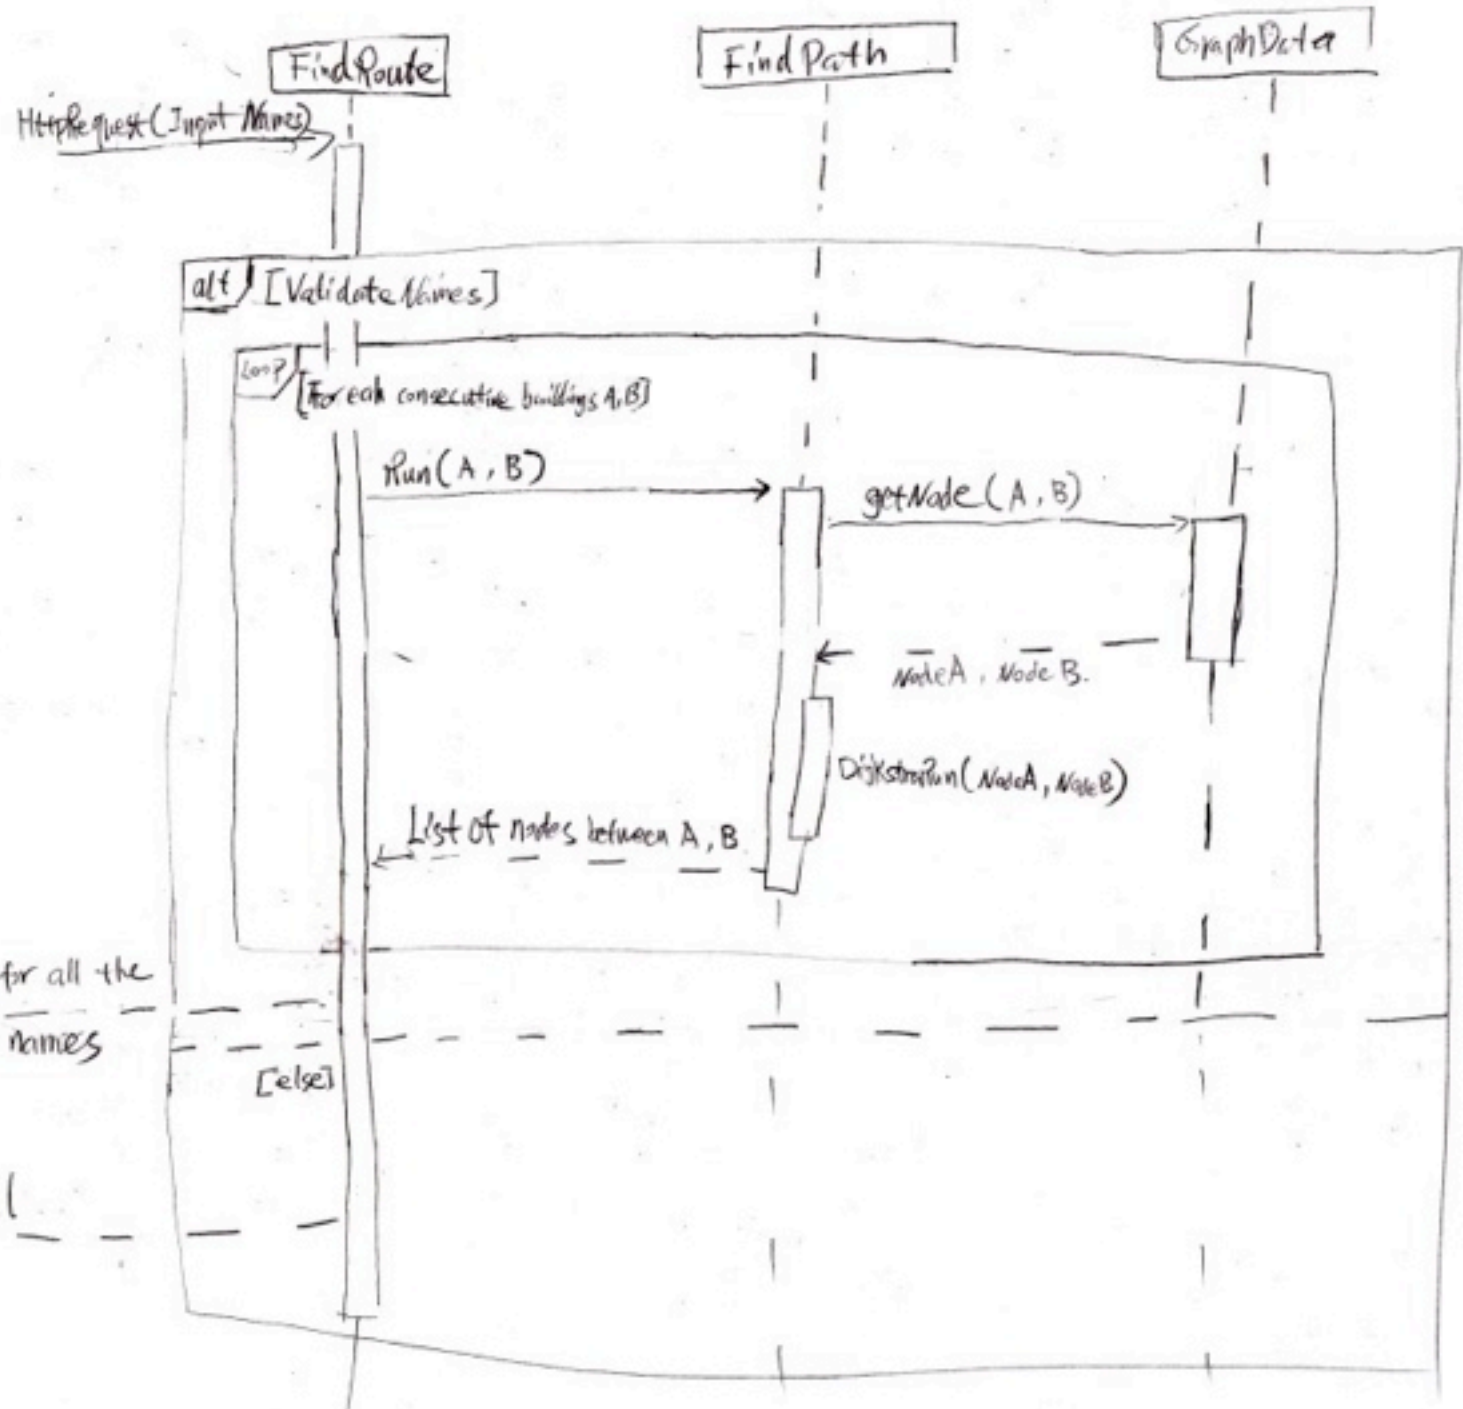 FindRoute
FindPath
GraphData
HttpRequest(Input Names)
alt
[Validate Names]
Loop
[For each consecutive buildings A,B]
Run(A, B)
getNode(A, B)
NodeA, Node B.
DijkstraRun(NodeA, NodeB)
List of nodes between A, B
for all the
names
[else]